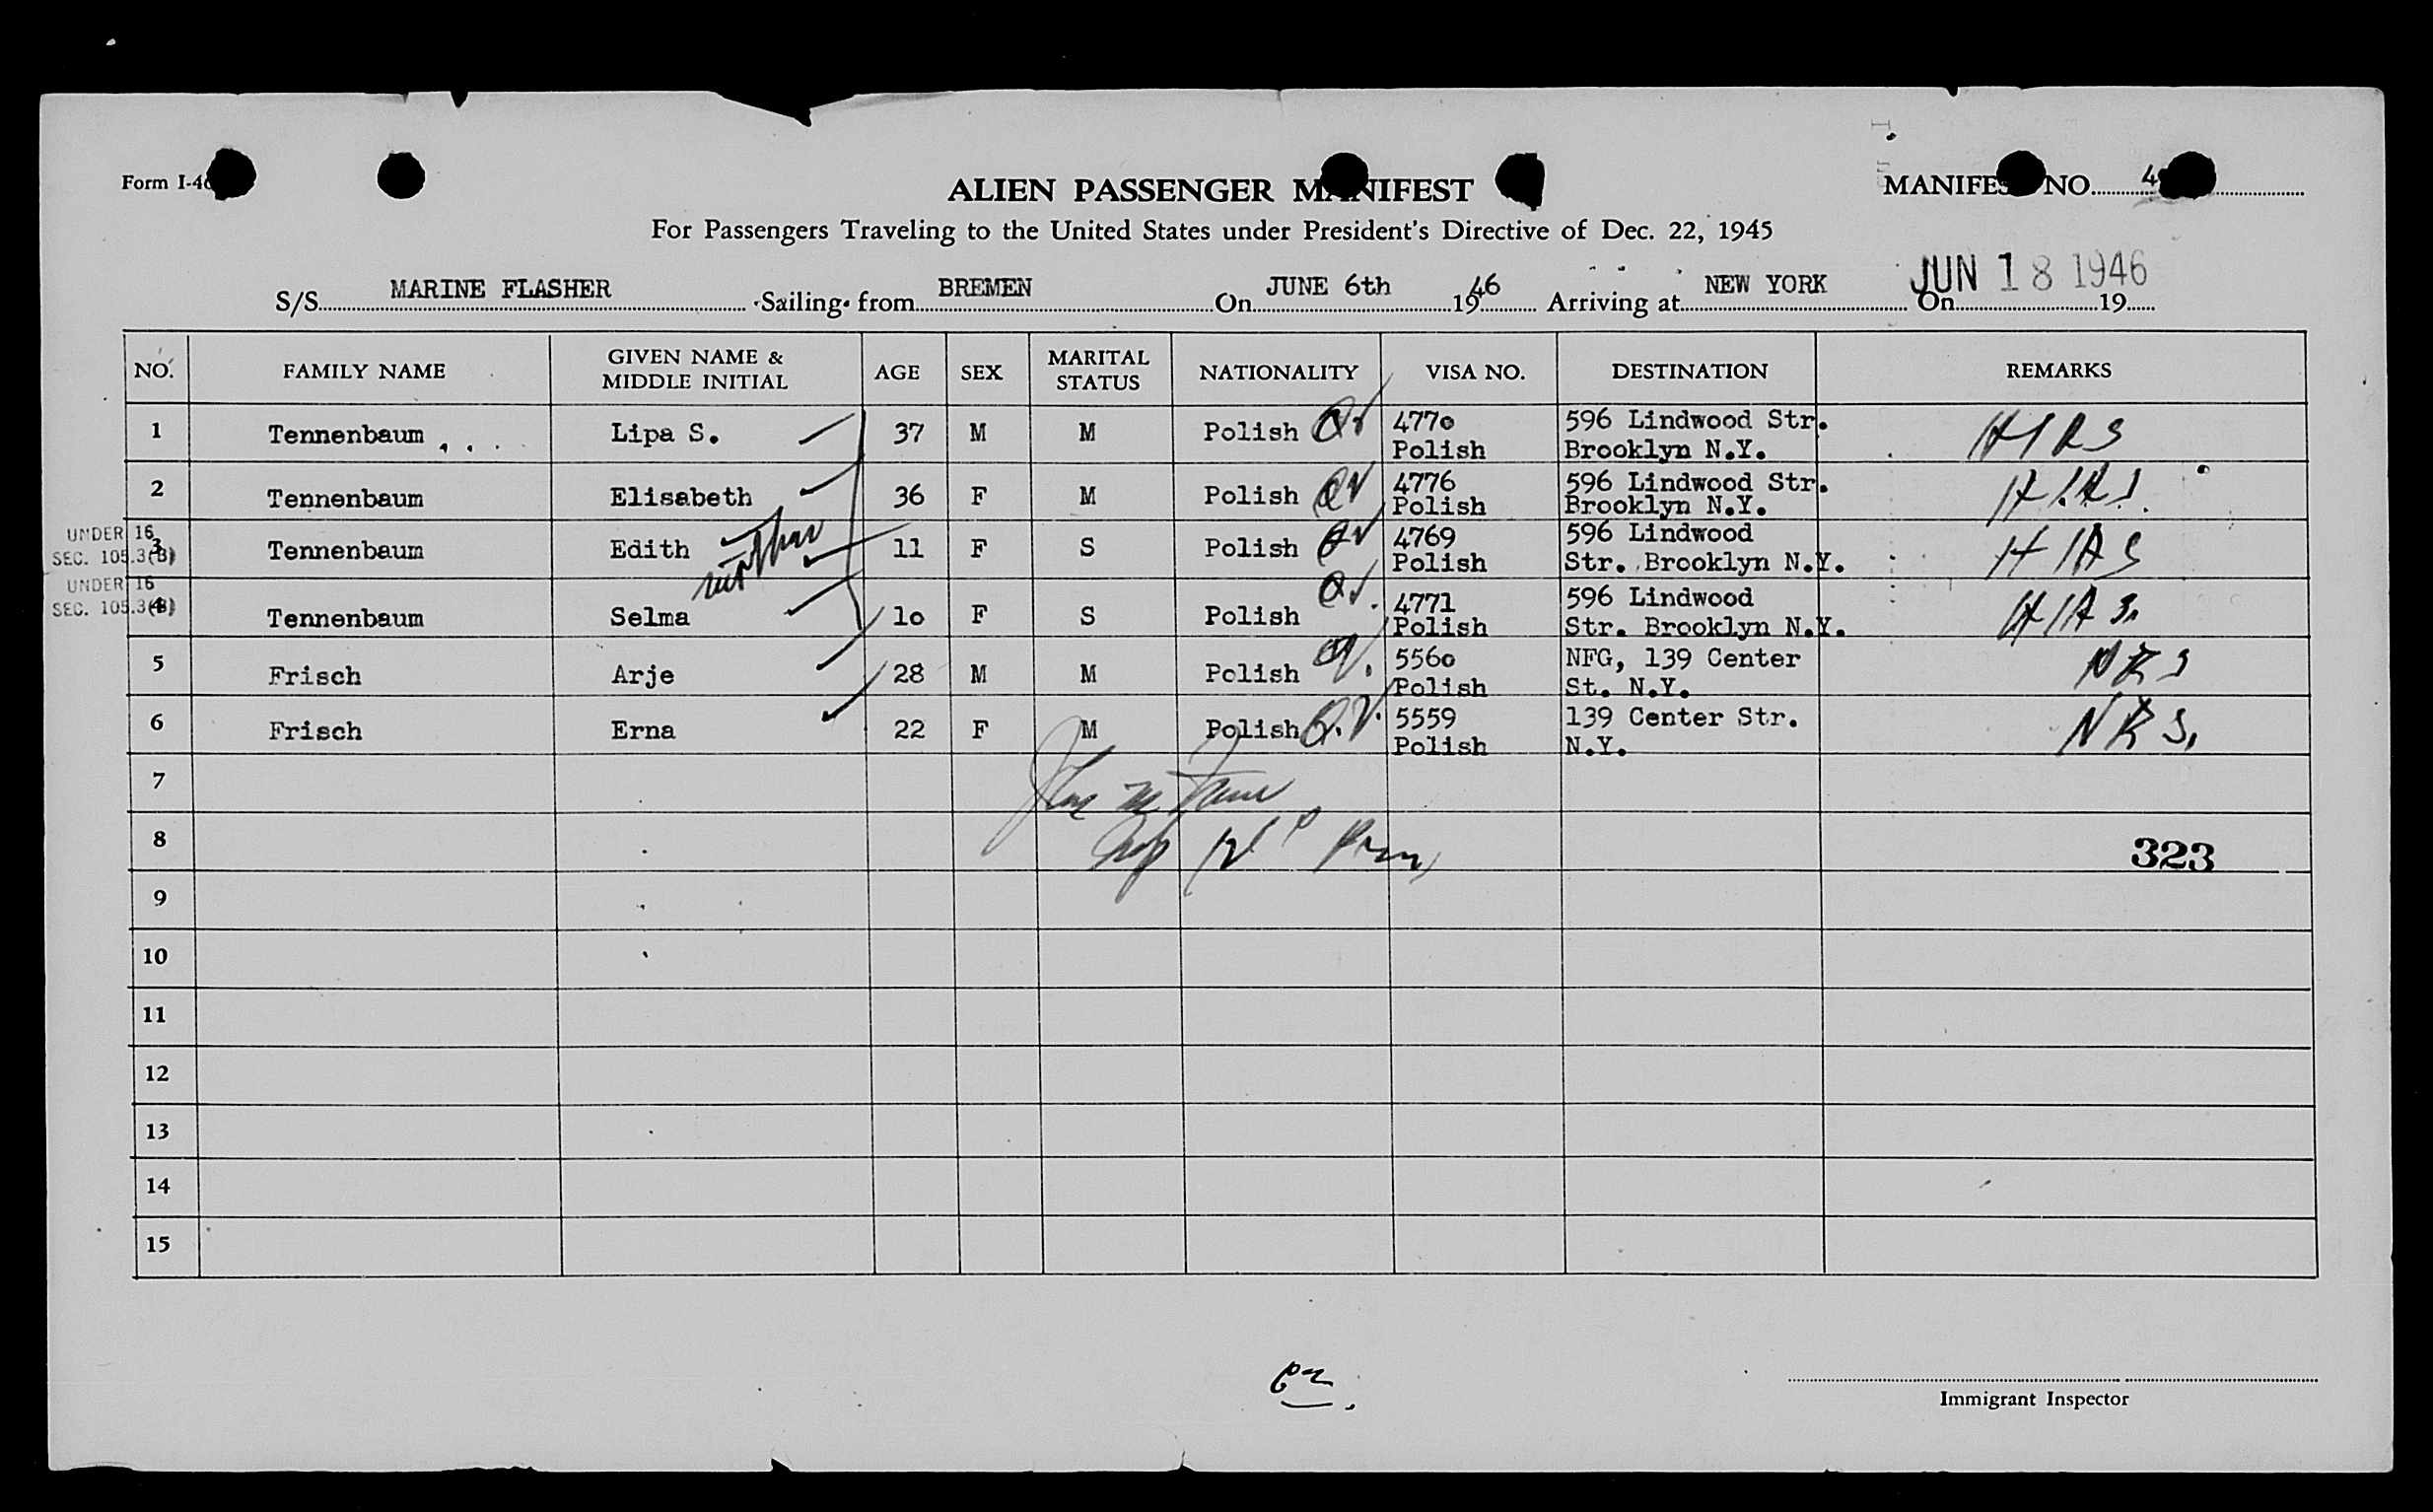 Form I-4
ALIEN PASSENGER M NIFEST
MANIFES NO. 4
For Passengers Traveling to the United States under President's Directive of Dec. 22, 1945
S/S MARINE FLASHER Sailing from BREMEN On JUNE 6th 1946 Arriving at NEW YORK On JUN 18 1946 19
NO. FAMILY NAME GIVEN NAME & MIDDLE INITIAL AGE SEX MARITAL STATUS NATIONALITY VISA NO. DESTINATION REMARKS
1 Tennenbaum Lipa S. 37 M M Polish 4770 596 Lindwood Str. HIAS
Polish Brooklyn N.Y.
2 Tennenbaum Elisabeth 36 F M Polish 4776 596 Lindwood Str. H.I.A.S.
Polish Brooklyn N.Y.
UNDER 16
SEC. 105.3(B)
3 Tennenbaum Edith 11 F S Polish 4769 596 Lindwood HIAS
mother Polish Str. Brooklyn N.Y.
UNDER 16
SEC. 105.3(B)
4 Tennenbaum Selma 10 F S Polish 4771 596 Lindwood HIAS.
Polish Str. Brooklyn N.Y.
5 Frisch Arje 28 M M Polish 5560 NFG, 139 Center NRS
Polish St. N.Y.
6 Frisch Erna 22 F M Polish 5559 139 Center Str. NRS.
Polish N.Y.
7
8 323
9
10
11
12
13
14
15
Immigrant Inspector